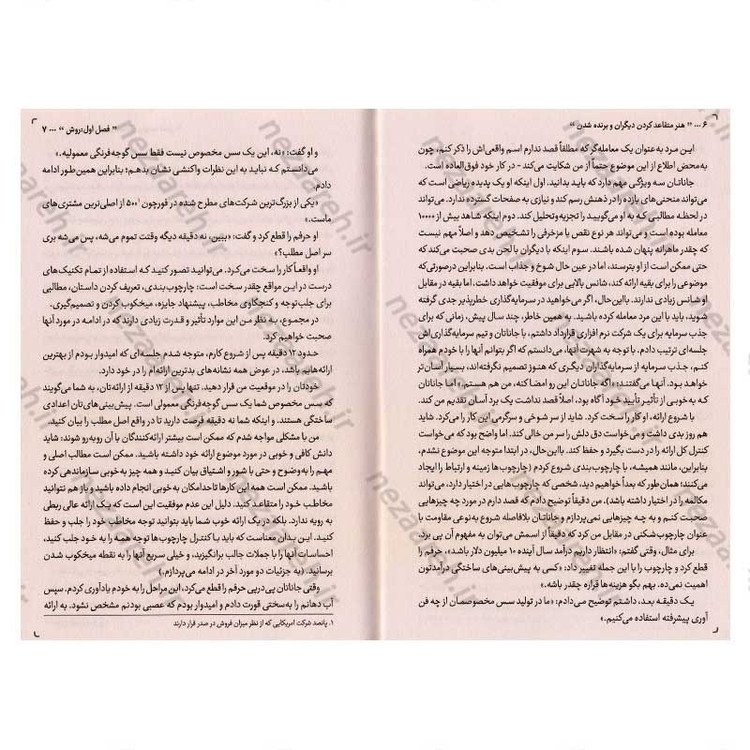 ۶ ... " هنر متقاعد کردن دیگران و برنده شدن "
این مرد به‌عنوان یک معامله‌گر که مطلقاً قصد ندارم اسم واقعی‌اش را ذکر کنم، چون
به‌محض اطلاع از این موضوع حتماً از من شکایت می‌کند - در کار خود فوق‌العاده است.
جاناتان سه ویژگی مهم دارد که باید بدانید. اول اینکه او یک پدیده ریاضی است که
می‌تواند منحنی‌های بازده را در ذهنش رسم کند و نیازی به صفحات گسترده ندارد. می‌تواند
در لحظه مطالبی که به او می‌گویید را تجزیه‌وتحلیل کند. دوم اینکه شاهد بیش از ۱۰۰۰۰
معامله بوده است و می‌تواند هر نوع نقص یا مزخرفی را تشخیص دهد و اصلاً مهم نیست
که چقدر ماهرانه پنهان شده باشند. سوم اینکه با دیگران با لحن بدی صحبت می‌کند که
حتی ممکن است از او بترسند، اما در عین حال شوخ و جذاب است. بنابراین درصورتی‌که
موضوعی را برای بقیه ارائه کند، شانس بالایی برای موفقیت خواهد داشت، اما بقیه در مقابل
او شانس زیادی ندارند. بااین‌حال، اگر می‌خواهید در سرمایه‌گذاری خطرپذیر جدی گرفته
شوید، باید با این مرد معامله کرده باشید. به همین خاطر، چند سال پیش، زمانی که برای
جذب سرمایه برای یک شرکت نرم افزاری قرارداد داشتم، با جاناتان و تیم سرمایه‌گذاری‌اش
جلسه‌ای ترتیب دادم. با توجه به شهرت آنها، می‌دانستم که اگر بتوانم آنها را با خودم همراه
کنم، جذب سرمایه از سرمایه‌گذاران دیگری که هنوز تصمیم نگرفته‌اند، بسیار آسان‌تر
خواهد بود. آنها می‌گفتند: «اگه جاناتان این رو امضا کنه، من هم هستم.» اما جاناتان
که به‌خوبی از تأثیر تأیید خود آگاه بود، اصلاً قصد نداشت یک برد آسان تقدیم من کند.
با شروع ارائه، او کار را سخت کرد. شاید از سر شوخی و سرگرمی این کار را می‌کرد. شاید
هم روز بدی داشت و می‌خواست دق دلش را سر من خالی کند. اما واضح بود که می‌خواست
کنترل کل ارائه را در دست بگیرد و حفظ کند. بااین‌حال، در ابتدا متوجه این موضوع نشدم،
بنابراین، مانند همیشه، با چارچوب‌بندی شروع کردم (چارچوب‌ها زمینه و ارتباط را ایجاد
می‌کنند؛ همان‌طور که بعداً خواهیم دید، شخصی که چارچوب‌هایی در اختیار دارد، می‌تواند
مکالمه را در اختیار داشته باشد). من دقیقاً توضیح دادم که قصد دارم در مورد چه چیزهایی
صحبت کنم و به چه چیزهایی نمی‌پردازم و جاناتان بلافاصله شروع به نوعی مقاومت با
عنوان چارچوب‌شکنی در مقابل من کرد که دقیقاً از اسمش می‌توان به مفهوم آن پی برد.
برای مثال، وقتی گفتم: «انتظار داریم درآمد سال آینده ۱۰ میلیون دلار باشد»، حرفم را
قطع کرد و چارچوب را با این جمله تغییر داد: «کسی به پیش‌بینی‌های ساختگی درآمدتون
اهمیت نمی‌ده. بهم بگو هزینه‌ها قراره چقدر باشه.»
یک دقیقه بعد، داشتم توضیح می‌دادم: «ما در تولید سس مخصوصمان از چه فن
آوری پیشرفته استفاده می‌کنیم.»
" فصل اول: روش " ... ۷
و او گفت: «نه، این یک سس مخصوص نیست فقط سس گوجه‌فرنگی معمولیه.»
می‌دانستم که نباید به این نظرات واکنشی نشان بدهم؛ بنابراین همین‌طور ادامه
دادم.
«یکی از بزرگ‌ترین شرکت‌های مطرح شده در فورچون ۵۰۰¹ از اصلی‌ترین مشتری‌های
ماست.»
او حرفم را قطع کرد و گفت: «ببین، نه دقیقه دیگه وقتت تموم می‌شه، پس می‌شه بری
سر اصل مطلب؟»
او واقعاً کار را سخت می‌کرد. می‌توانید تصور کنید که استفاده از تمام تکنیک‌های
درست در این مواقع چقدر سخت است: چارچوب‌بندی، تعریف کردن داستان، مطالبی
برای جلب‌توجه و کنجکاوی مخاطب، پیشنهاد جایزه، میخکوب کردن و تصمیم‌گیری.
در مجموع، به نظر من این موارد تأثیر و قدرت زیادی دارند که در ادامه در مورد آنها
صحبت خواهیم کرد.
حدود ۱۲ دقیقه پس از شروع کارم، متوجه شدم جلسه‌ای که امیدوار بودم از بهترین
ارائه‌هایم باشد، در عوض همه نشانه‌های بدترین ارائه‌ام را در خود دارد.
خودتان را در موقعیت من قرار دهید. تنها پس از ۱۲ دقیقه از ارائه‌تان، به شما می‌گویند
که سس مخصوص شما یک سس گوجه فرنگی معمولی است. پیش‌بینی‌های‌تان اعدادی
ساختگی هستند. و اینکه شما نه دقیقه فرصت دارید تا در واقع اصل مطلب را بیان کنید.
من با مشکلی مواجه شدم که ممکن است بیشتر ارائه‌کنندگان با آن روبه‌رو شوند: شاید
دانش کافی و خوبی در مورد موضوع ارائه خود داشته باشید. ممکن است مطالب اصلی و
مهم را به‌وضوح و حتی با شور و اشتیاق بیان کنید و همه چیز به خوبی سازماندهی کرده
باشید. ممکن است همه این کارها تاحدامکان به‌خوبی انجام داده باشید، باز هم نتوانید
مخاطب خود را متقاعد کنید. دلیل این عدم موفقیت این است که یک ارائه عالی ربطی
به رویه ندارد. بلکه در یک ارائه خوب شما باید بتوانید توجه مخاطب خود را جلب و حفظ
کنید. این بدان معناست که باید با کنترل چارچوب‌ها توجه همه را به خود جلب کنید،
احساسات آنها را با جملات جالب برانگیزید، و خیلی سریع آنها را به نقطه میخکوب شدن
برسانید. (به جزئیات دو مورد آخر در ادامه می‌پردازم.)
وقتی جاناتان پی‌درپی حرفم را قطع می‌کرد، این مراحل را به خودم یادآوری کردم. سپس
آب دهانم را به‌سختی قورت دادم و امیدوار بودم که عصبی بودنم مشخص نشود. به ارائه
۱. پانصد شرکت امریکایی که از نظر میزان فروش در صدر قرار دارند
nezaareh.ir